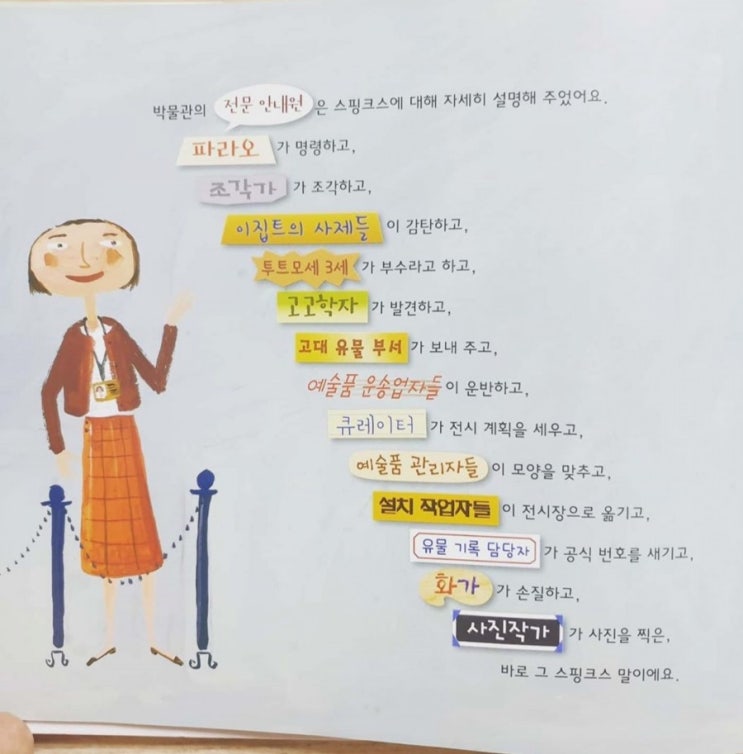 박물관의 전문 안내원 은 스핑크스에 대해 자세히 설명해 주었어요.
파라오 가 명령하고,
조각가 가 조각하고,
이집트의 사제들 이 감탄하고,
투트모세 3세 가 부수라고 하고,
고고학자 가 발견하고,
고대 유물 부서 가 보내 주고,
예술품 운송업자들 이 운반하고,
큐레이터 가 전시 계획을 세우고,
예술품 관리자들 이 모양을 맞추고,
설치 작업자들 이 전시장으로 옮기고,
유물 기록 담당자 가 공식 번호를 새기고,
화가 가 손질하고,
사진작가 가 사진을 찍은,
바로 그 스핑크스 말이에요.